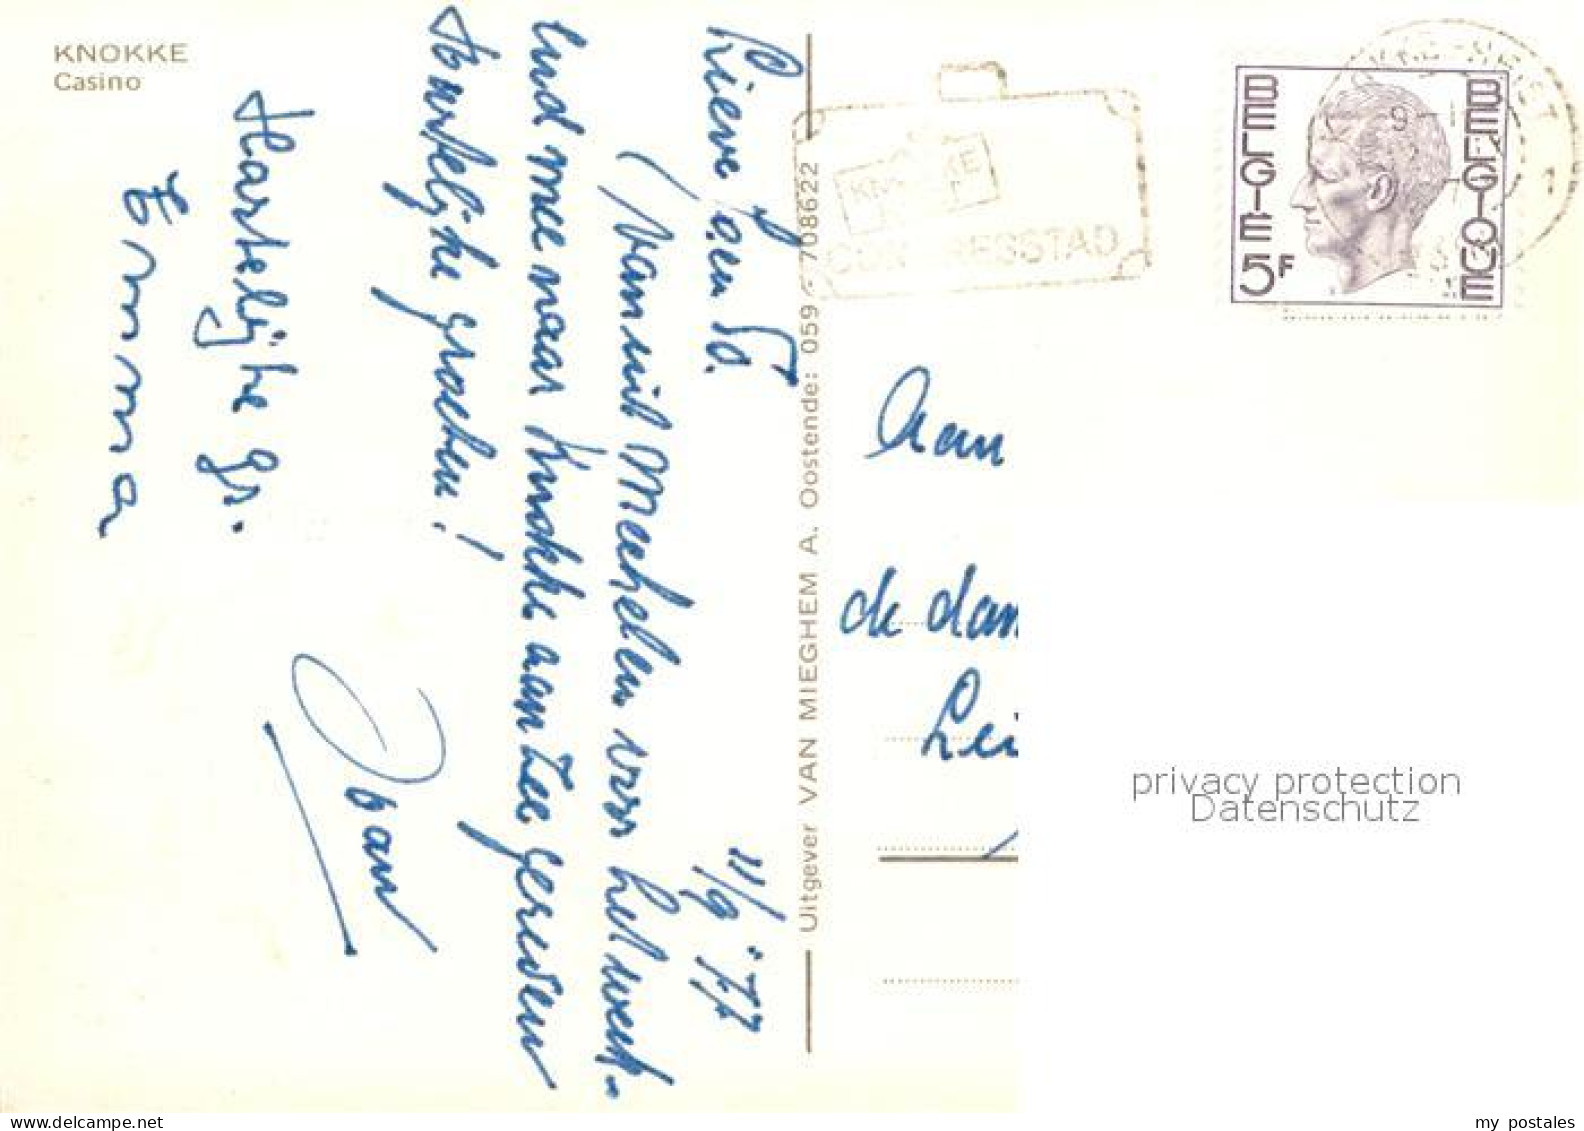 KNOKKE
Casino
11/9 '77
Lieve
Vanuit Mechelen voor het week-
end mee naar Knokke aan Zee gereden
Hartelijke groeten!
Hartelijke gr.
Emma
Uitgever VAN MIEGHEM A. Oostende: 059 - 708622
KNOKKE
CONGRESSTAD
BELGIE
BELGIQUE
5F
Aan
de dam
Lei
privacy protection
Datenschutz
my postales